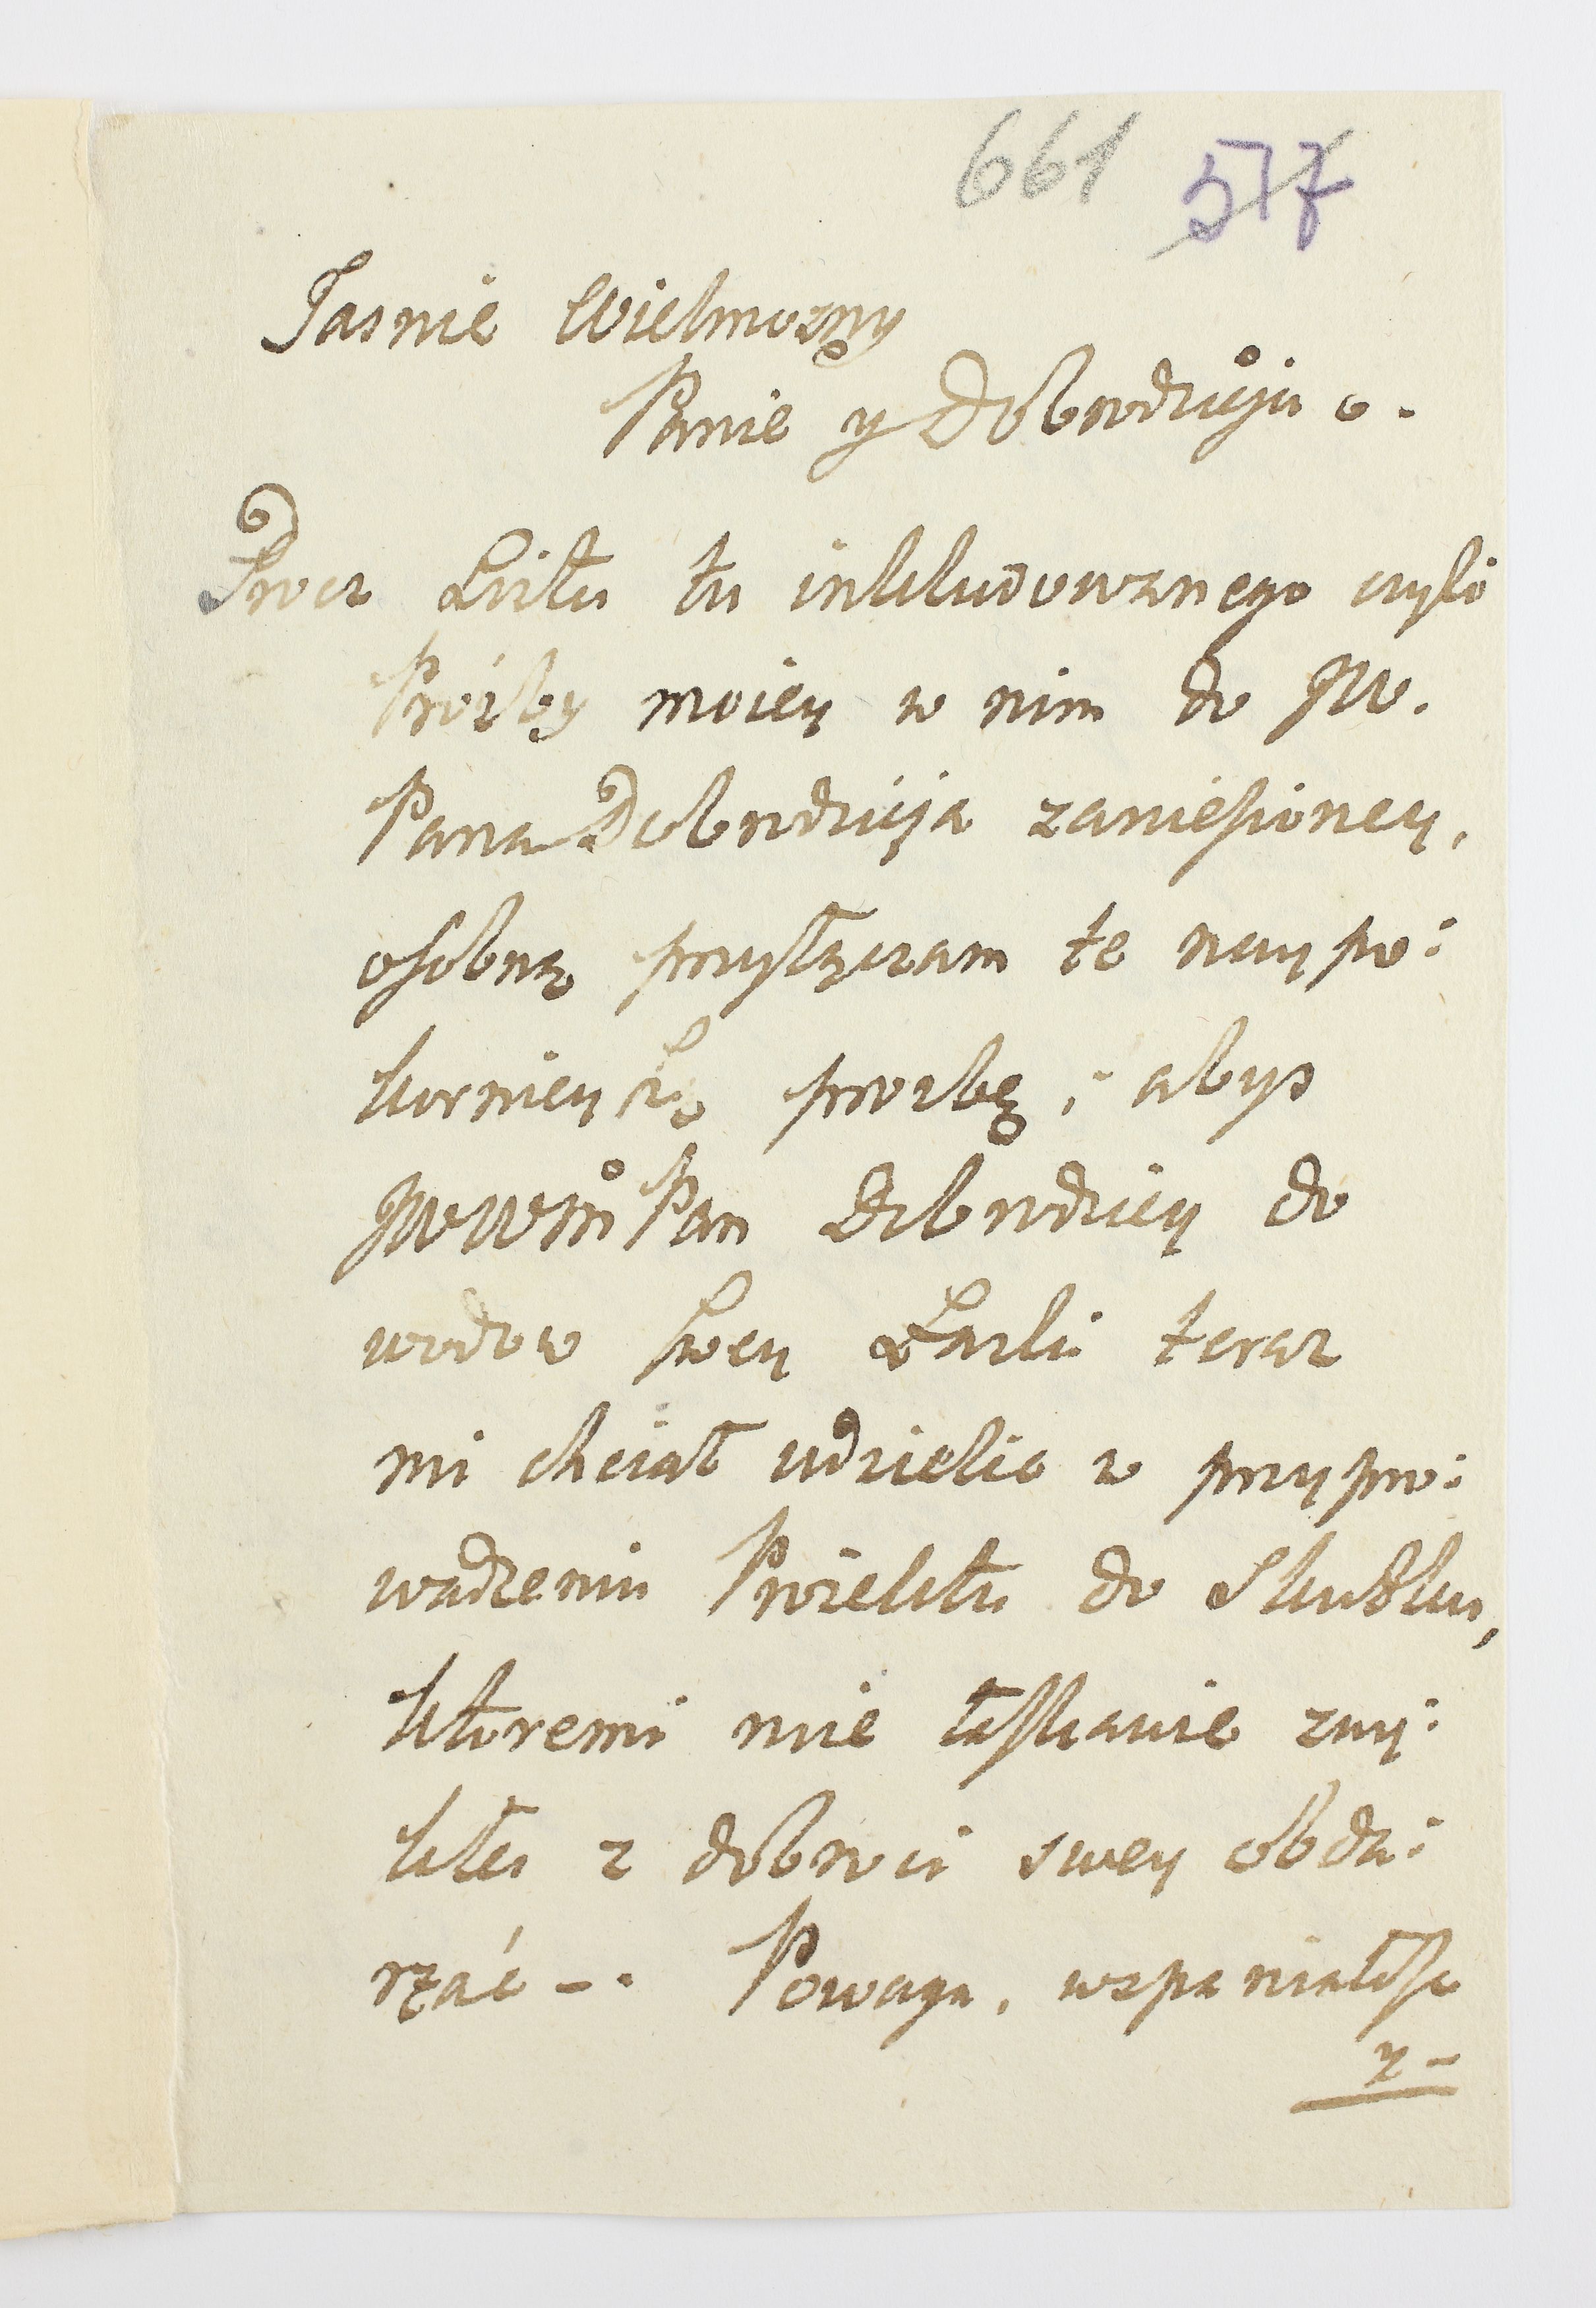 661 517
Jasnie Wielmozny
Panie y Dobrodzieju
Procz Listu tu inkludowanego czyli
Proźby moiey w nim do JW.
Pana Dobrodzieja zaniesioney,
osobną przyłączam te naypo:
kornieyszą prozbę, abys
JWWM Pan Dobrodziey do
wodow swey Łaski teraz
mi chciał udzielic w przypro:
wadzeniu Proiektu do Skutku,
ktoremi mie łaskawie zwy:
kłeś z dobroci swey obda:
rzać -. Powaga, wspaniałosc
y -